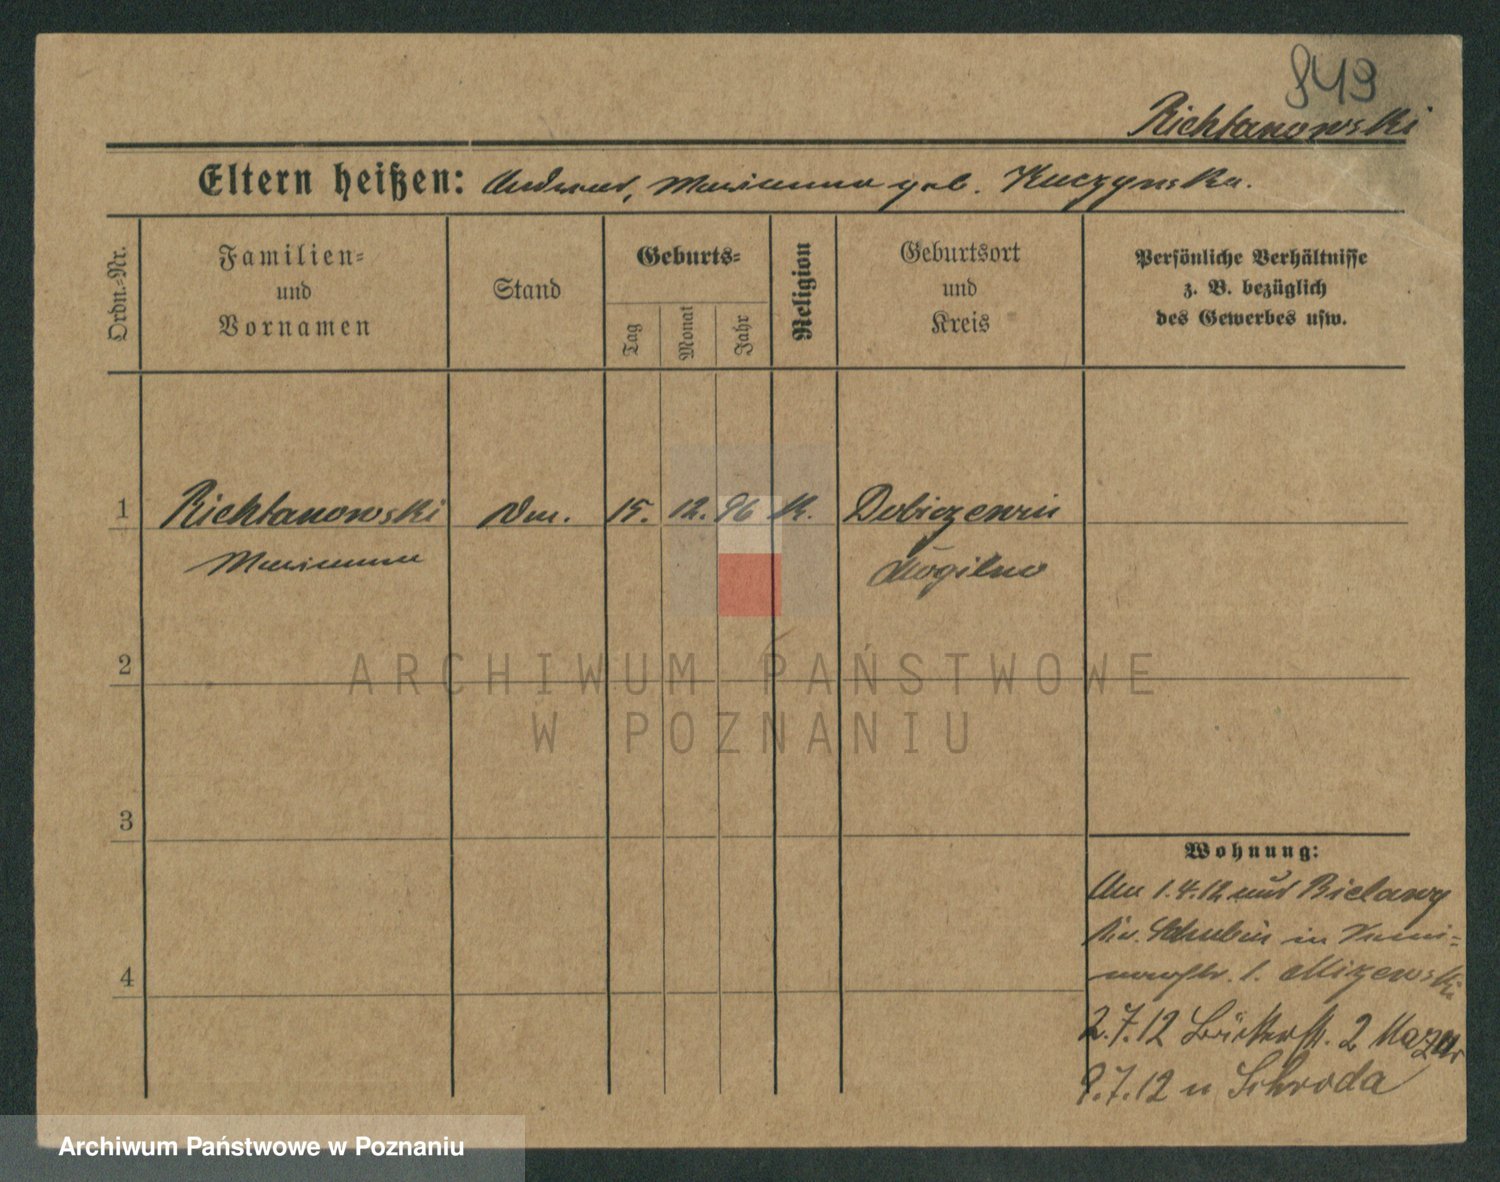 849
Richtanowski
Eltern heißen: Andreas, Marianna geb. Kuczynska.
Ordn.-Nr.
Familien=
und
Vornamen
Stand
Geburts=
Tag
Monat
Jahr
Religion
Geburtsort
und
Kreis
Persönliche Verhältnisse
z. B. bezüglich
des Gewerbes usw.
1 Richtanowski 15. 12. 96 K.
Marianna Mogilno
2
ARCHIWUM PAŃSTWOWE
W POZNANIU
3
Wohnung:
1.4.12 aus Bielawy
Kr. Schubin in
1. Mizewski
4
2.7.12 Bäckerstr. 2 Mazur
9.7.12 n Schroda
Archiwum Państwowe w Poznaniu